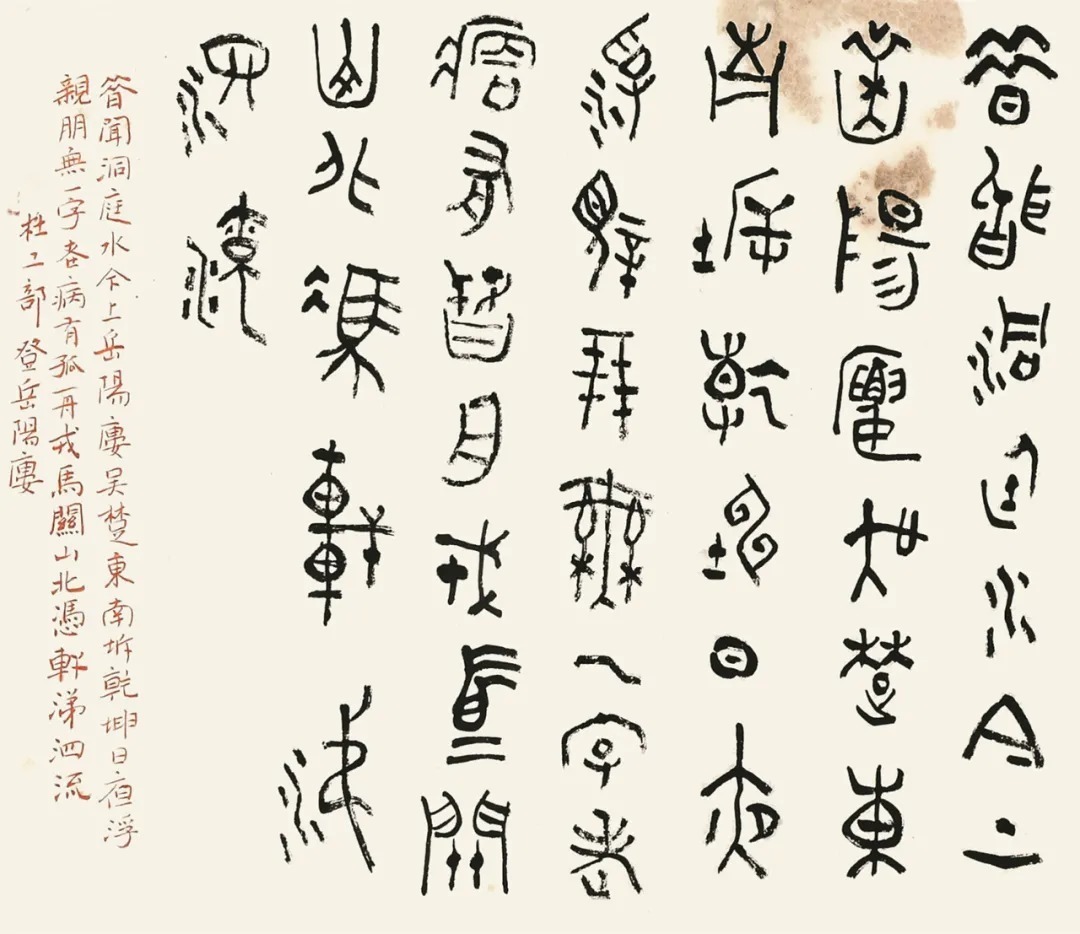 昔聞洞庭水今上
岳陽廔吳楚東
南坼乾坤日夜
浮親朋無一字老
病有孤舟戎馬關
山北憑軒涕
泗流
昔聞洞庭水今上岳陽廔吴楚東南坼乾坤日夜浮
親朋無一字老病有孤舟戎馬關山北憑軒涕泗流
杜工部登岳陽廔